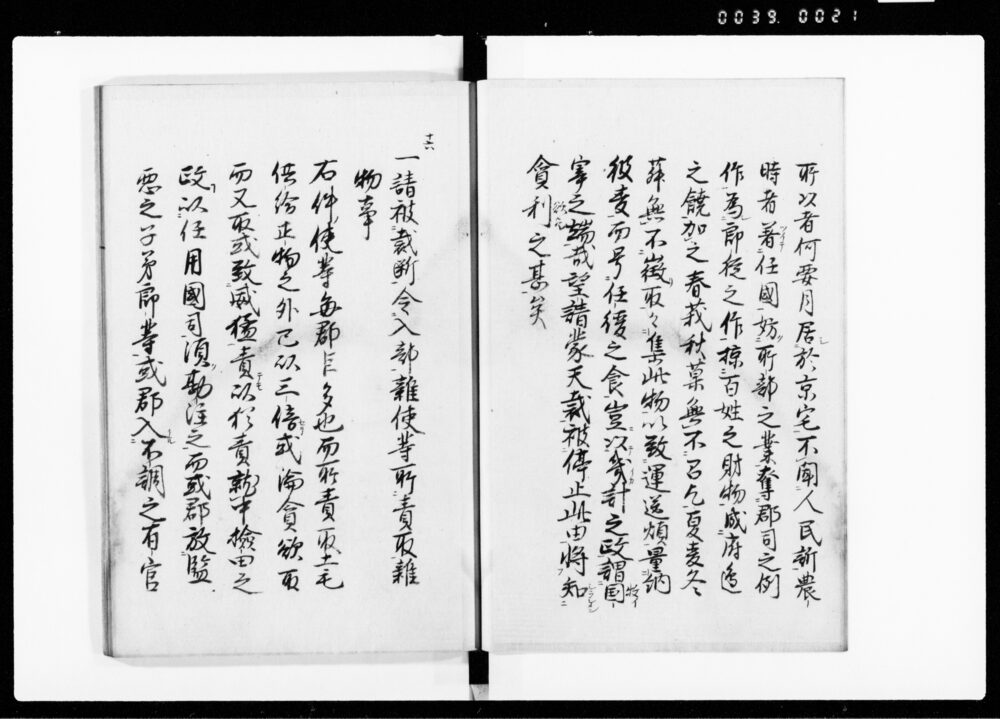 0039 0021
所以者何要月居於京宅不聞人民訴農
時者著任國妨所部之業奪郡司之例
作為郎従之作掠百姓之財物成府邊
之饒加之春莪秋菓無不召乞夏麦冬
薢無不徴取々集此物以致運送煩量納
彼麦而号任後之食豈以幾計之政謂国
宰之端哉望請蒙天裁被停止此由将知
貪利之甚矣
十六
一請被裁断令入部雑使等所責取雑
物事
右件使等毎郡巨多也而所責取土毛
供給正物之外已以三倍或淪貪欲取
而又取或致威猛責以猶責就中検田之
政以任用國司須勘注之而或郡放監
悪之子弟郎等或郡入不調之有官